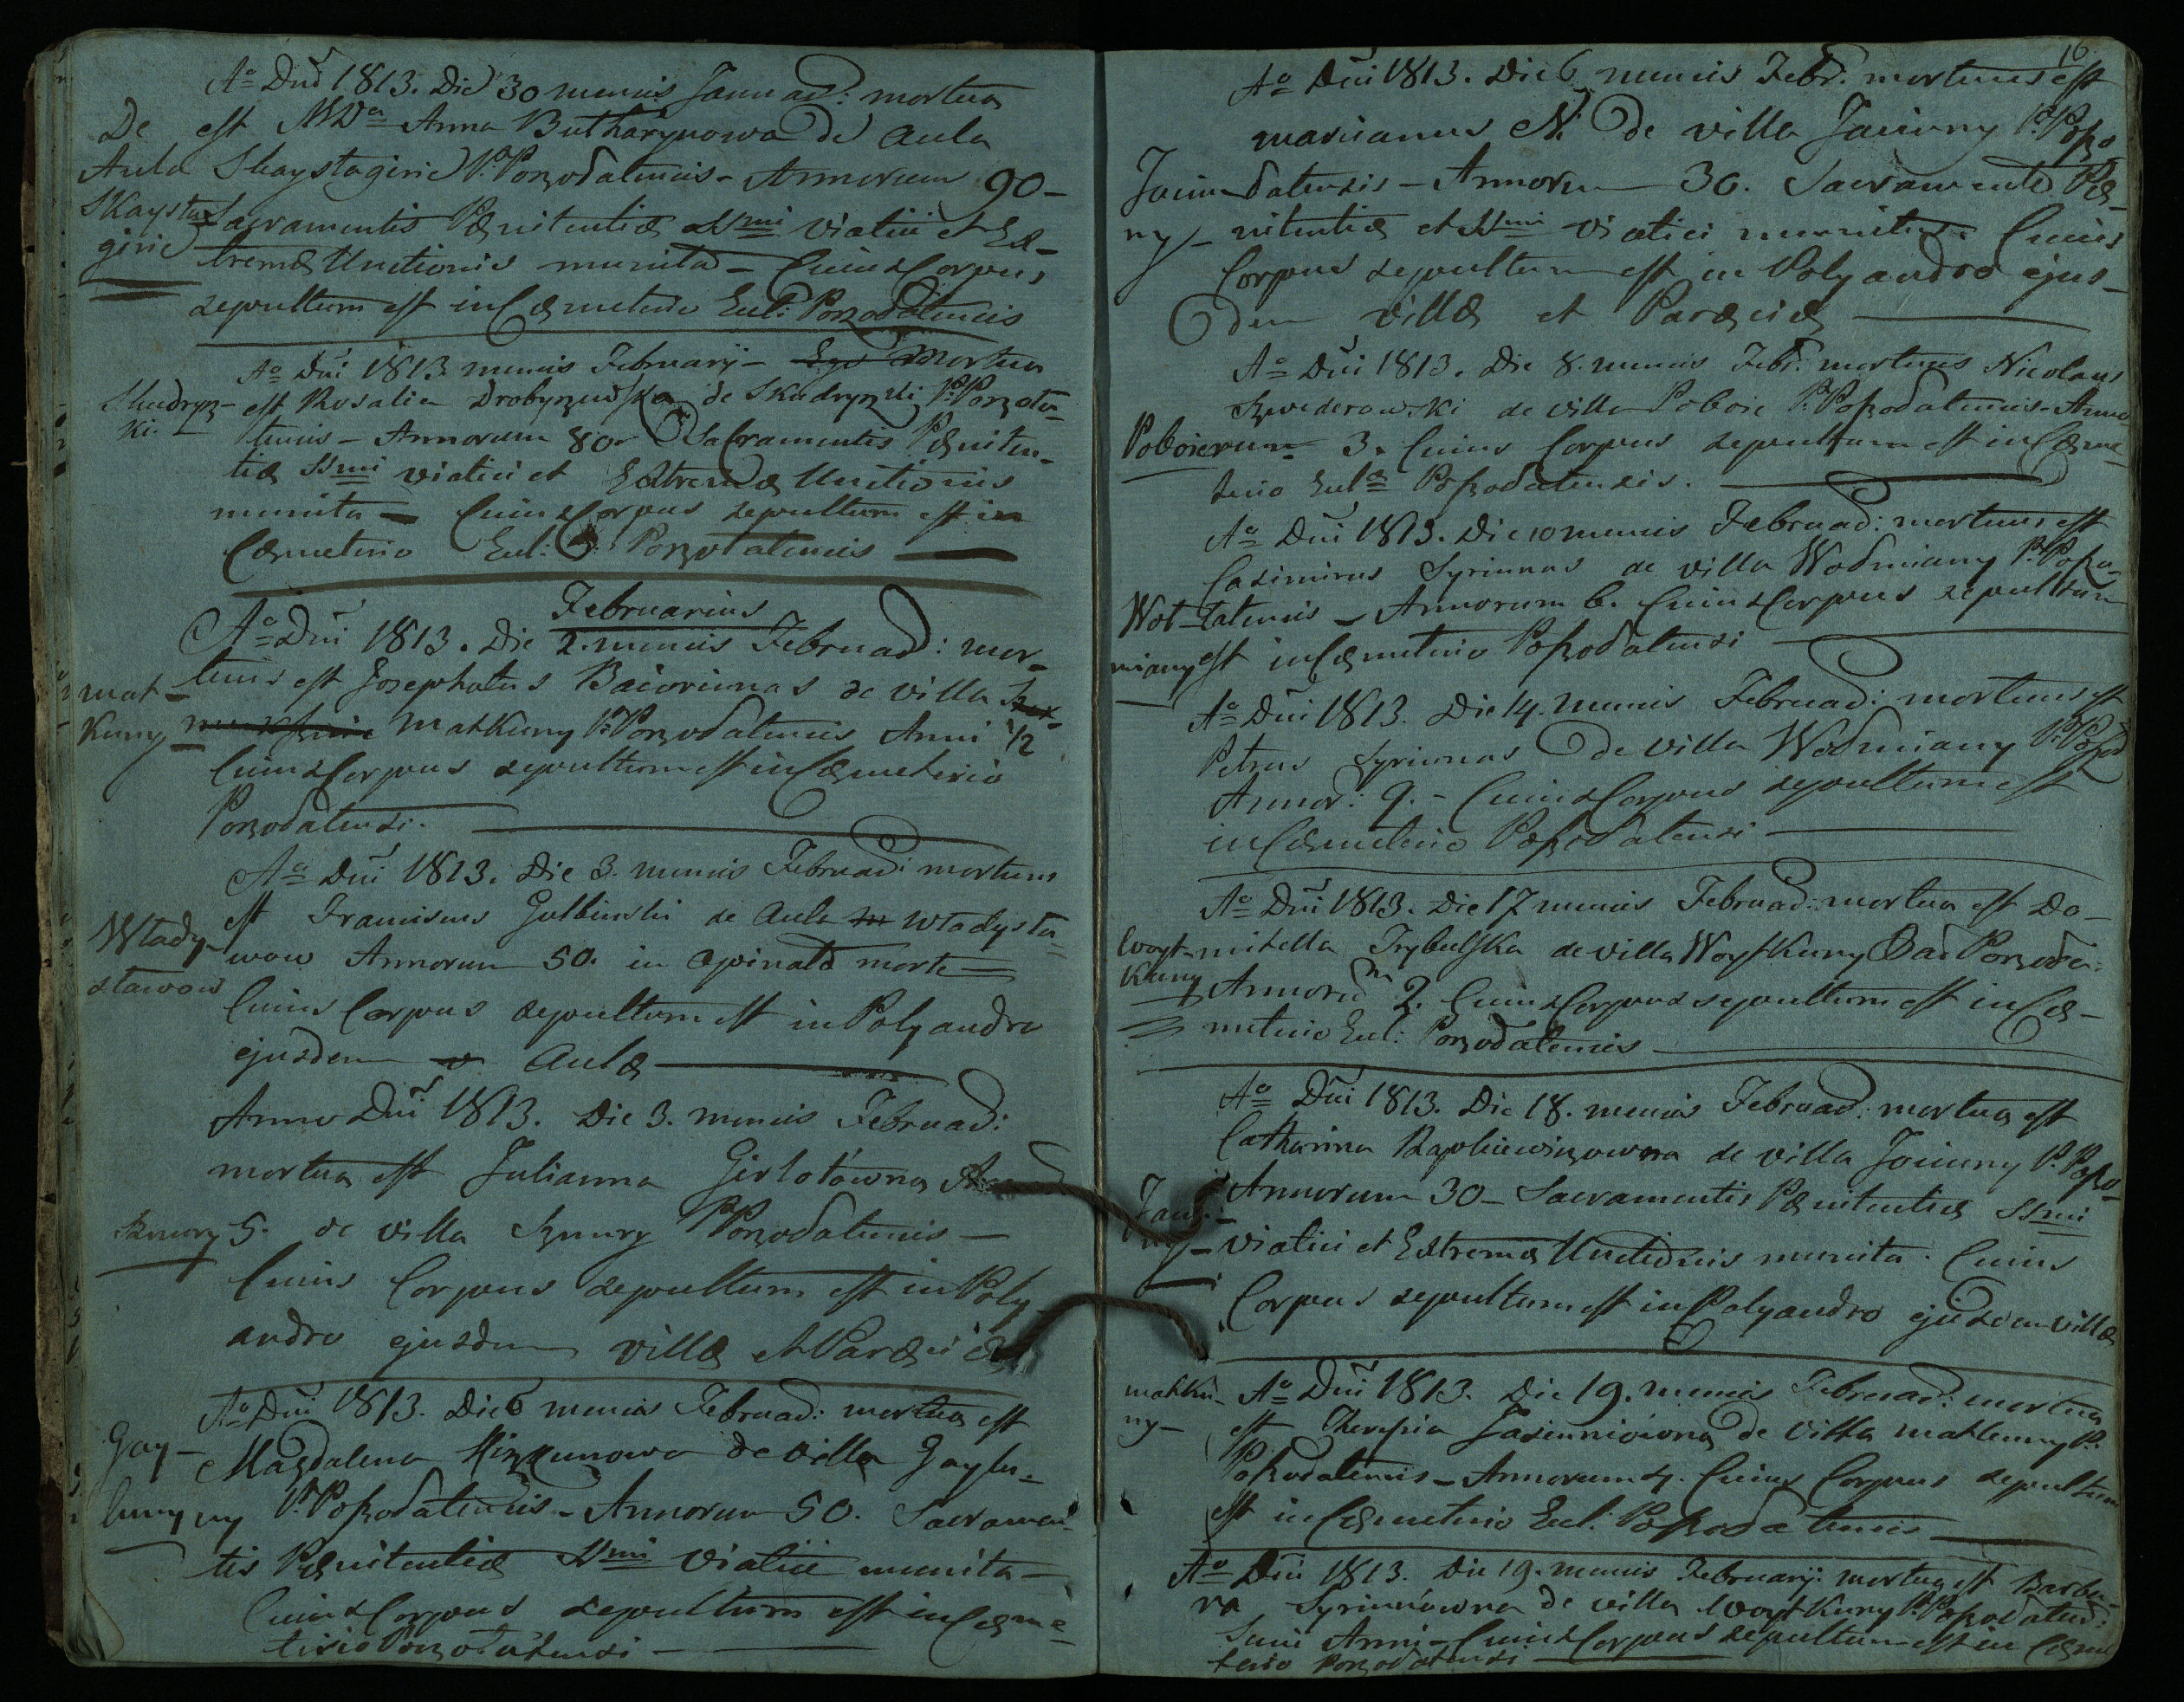 Aº Dni 1813. Die 30 mensis Januar: mortua
De est MDna Anna Butharynowa de Aula
Aula Skaystagirie P. Ponzodatensis - Annorum 90 -
Skaysta Sacramentis Pænitentiæ SSmi Viatici et Ex-
girie tremæ Unctionis munita - Cuius Corpus
sepultum est in Cæmeterio Eccl: Ponzodatensis
Aº Dni 1813 mensis Februarij - Mortua
Skudryz- est Rosalia Drobyszewska de Skudryzki P. Ponzoda-
ki. tensis - Annorum 80 Sacramentis Pæniten-
tiæ SSmi Viatici et Extremæ Unctionis
munita - Cuius Corpus sepultum est in
Cæmeterio Eccl: Ponzodatensis
Februarius
Aº Dni 1813. Die 2. mensis Februar: mor-
mat- tuus est Josephatus Baciorunas de villa
kuny matkuny P. Ponzodatensis Anni 1/2
Cuius Corpus sepultum est in Cæmeterio
Ponzodatensi.
Aº Dni 1813. Die 3. mensis Februar: mortuus
Wlady- est Franciscus Gulbinski de Aula Wladysla-
slawow wow Annorum 50. in opinata morte
Cuius Corpus sepultum est in Polyandro
ejusdem Aulæ
Anno Dni 1813. Die 3. mensis Februar:
mortua est Julianna Girlotowna
Sznury 5. de villa Sznury P. Ponzodatensis -
Cuius Corpus sepultum est in Poly-
andro ejusdem villæ et Paræciæ
Aº Dni 1813. Die 6 mensis Februar: mortua est
Gay- Magdalena Mizkunowa de villa Gaylu-
luny ny P. Poszodatensis - Annorum 50. Sacramen-
tis Pænitentiæ SSmi Viatici munita -
Cuius Corpus sepultum est in Cæme-
terio Ponzodatensi
16.
Aº Dni 1813. Die 6 mensis Febr: mortuus est
marianus N: de villa Jaciuny P. Poszo
Jaciu- datensis - Annorum 30. Sacramentis Pæ-
ny - nitentiæ et SSmi Viatici munitus. Cuius
Corpus sepultum est in Polyandro ejus-
dem villæ et Paræciæ
Aº Dni 1813. Die 8. mensis Febr: mortuus Nicolaus
Szwederowski de villa Poboie P. Poszodatensis - Anno-
Poboie rum 3. Cuius Corpus sepultum est in Cæme-
terio Eccl: Poszodatensis.
Aº Dni 1813. Die 10 mensis Februar: mortuus est
Casimirus Syriunas de villa Wodmiany P. Poszo-
Wot- datensis - Annorum 6. Cuius Corpus sepultum
miany est in Cæmeterio Poszodatensi
Aº Dni 1813. Die 14. mensis Februar: mortuus est
Petrus Syriunas de villa Wodmiany P. Poszod
Annor: 9. - Cuius Corpus sepultum est
in Cæmeterio Poszodatensi
Aº Dni 1813. Die 17 mensis Februar: mortua est Do-
Woyt- mitella Trybulska de villa Woytkuny Par Ponzoda
kuny Annoru 2. Cuius Corpus sepultum est in Cæ-
meterio Eccl: Ponzodatensis
Aº Dni 1813. Die 18. mensis Februar: mortua est
Catharina Rapkiewiczowna de villa Jociuny P. Poszo-
Annorum 30 - Sacramentis Pænitentiæ SSmi
ny - Viatici et Extremæ Unctionis munita. Cuius
Corpus sepultum est in Polyandro ejusdem villæ
matku- Aº Dni 1813. Die 19. mensis Februar: mortua
ny - est Theresia Jasiuniowna de villa matkuny P.
Poszodatensis - Annorum 4. Cuius Corpus sepultum
est in Cæmeterio Eccl: Poszodatensis
Aº Dni 1813. Die 19. mensis Februarij: mortua est Barba-
ra Syriunowna de villa Woytkuny P. Poszodaten:
Anni - Cuius Corpus sepultum est in Cæme
terio Ponzodatensi